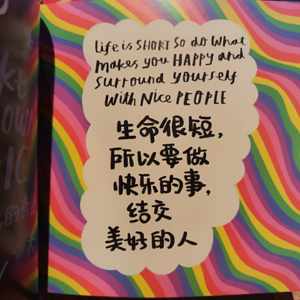 Life is SHORT So do What
Makes you HAPPY and
Surround yourself
With Nice PEOPLE
生命很短,
所以要做
快乐的事,
结交
美好的人